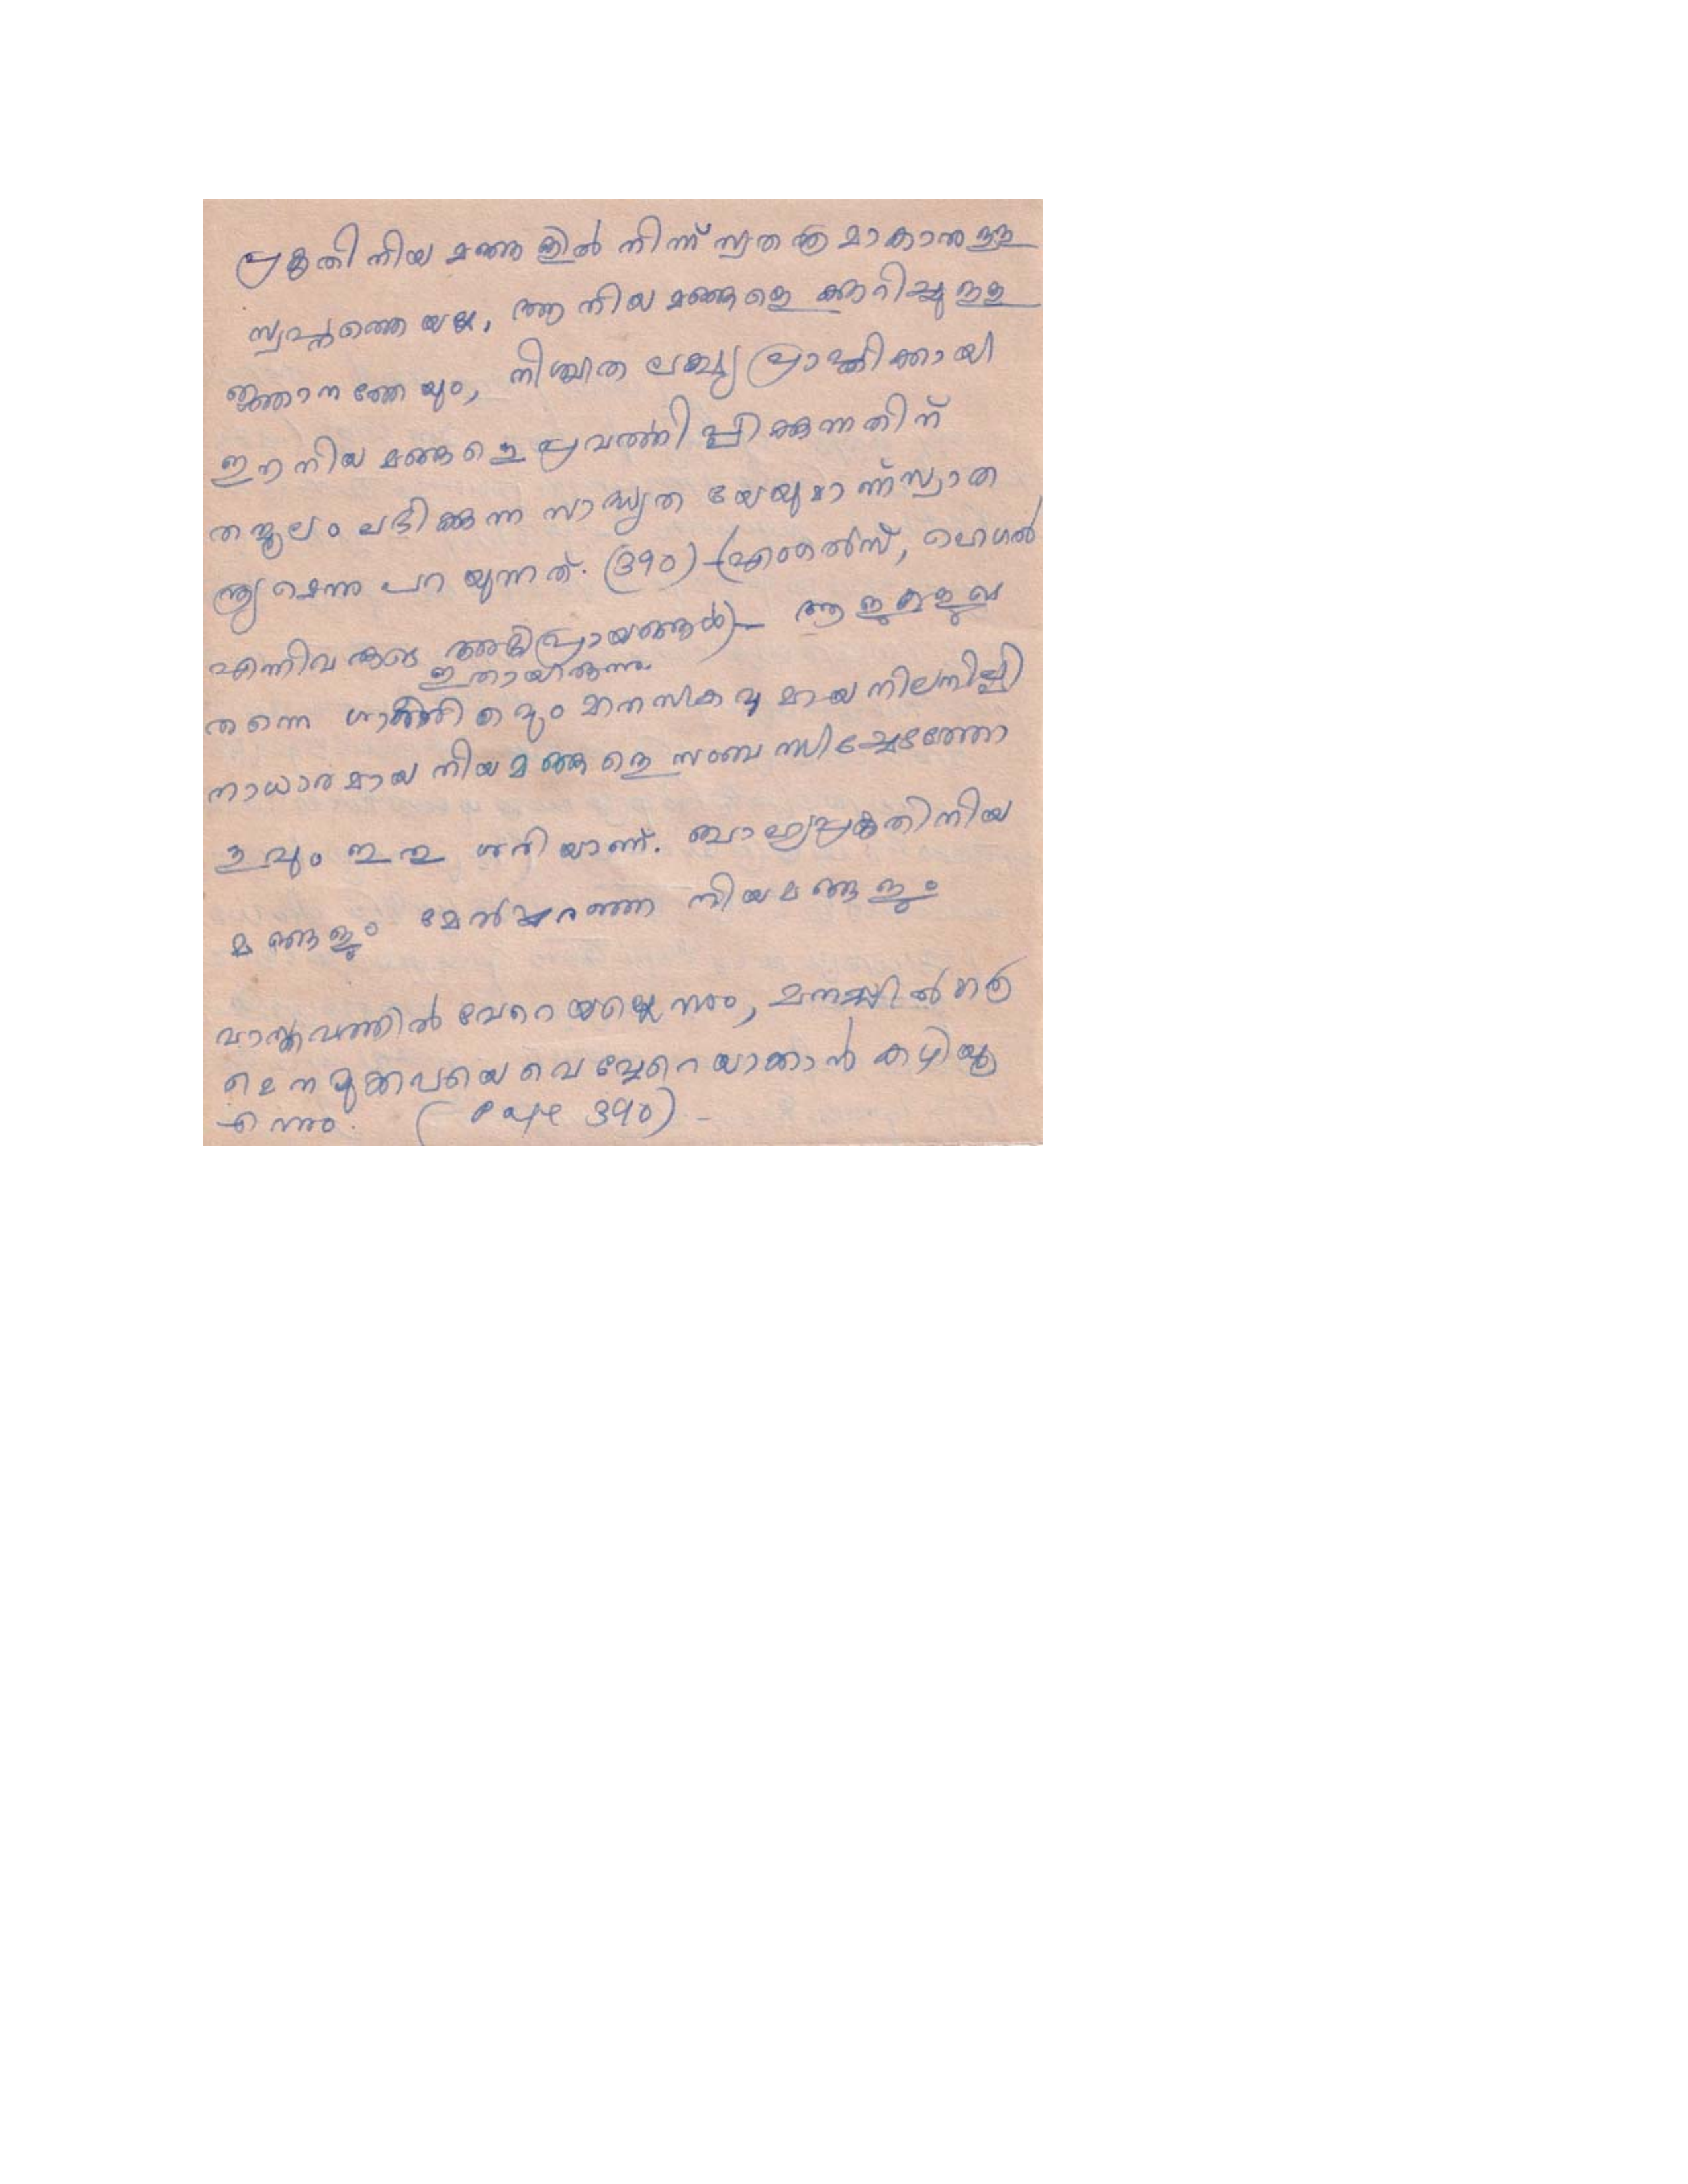 പ്രകൃതി നിയമങ്ങളിൽ നിന്ന് സ്വതന്ത്രമാകാനുള്ള
സ്വപ്നത്തെയല്ല, ആ നിയമങ്ങളെക്കുറിച്ചുള്ള
ജ്ഞാനത്തേയും, നിശ്ചിത ലക്ഷ്യപ്രാപ്തിക്കായി
ഈ നിയമങ്ങളെ പ്രവർത്തിപ്പിക്കുന്നതിന്
തന്മൂലം ലഭിക്കുന്ന സാദ്ധ്യതയേയുമാണ് സ്വാത
ന്ത്ര്യമെന്നു പറയുന്നത്. (390) – (ഏംഗൽസ്, ഹെഗൽ
എന്നിവരുടെ അഭിപ്രായങ്ങൾ) – ആളുകളുടെ
ഇതായിരുന്നു.
തന്നെ ശാരീരികവും മാനസികവുമായ നിലനില്പി
നാധാരമായ നിയമങ്ങളെ സംബന്ധിച്ചേടത്തോ
ളവും ഇതു ശരിയാണ്. ബാഹ്യപ്രകൃതിനിയ
മങ്ങളും മേൽപറഞ്ഞ നിയമങ്ങളും
വാസ്തവത്തിൽ വേറെയല്ലെന്നും, മനസ്സിൽ മാത്ര
മെ നമുക്കവയെ വെവ്വേറെയാക്കാൻ കഴിയൂ
എന്നും. (Page 390) –